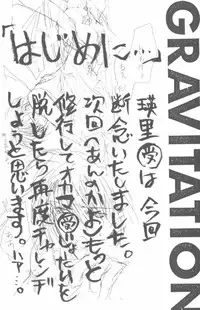 GRAVITATION
「はじめに…」
瑛里㊙は今回
断念いたしました。
次回(あんのかよ)もっと
修行してオカマ㊙じょたいを
脱したら再度チャレンヂ
しようと思います。ハァ…。